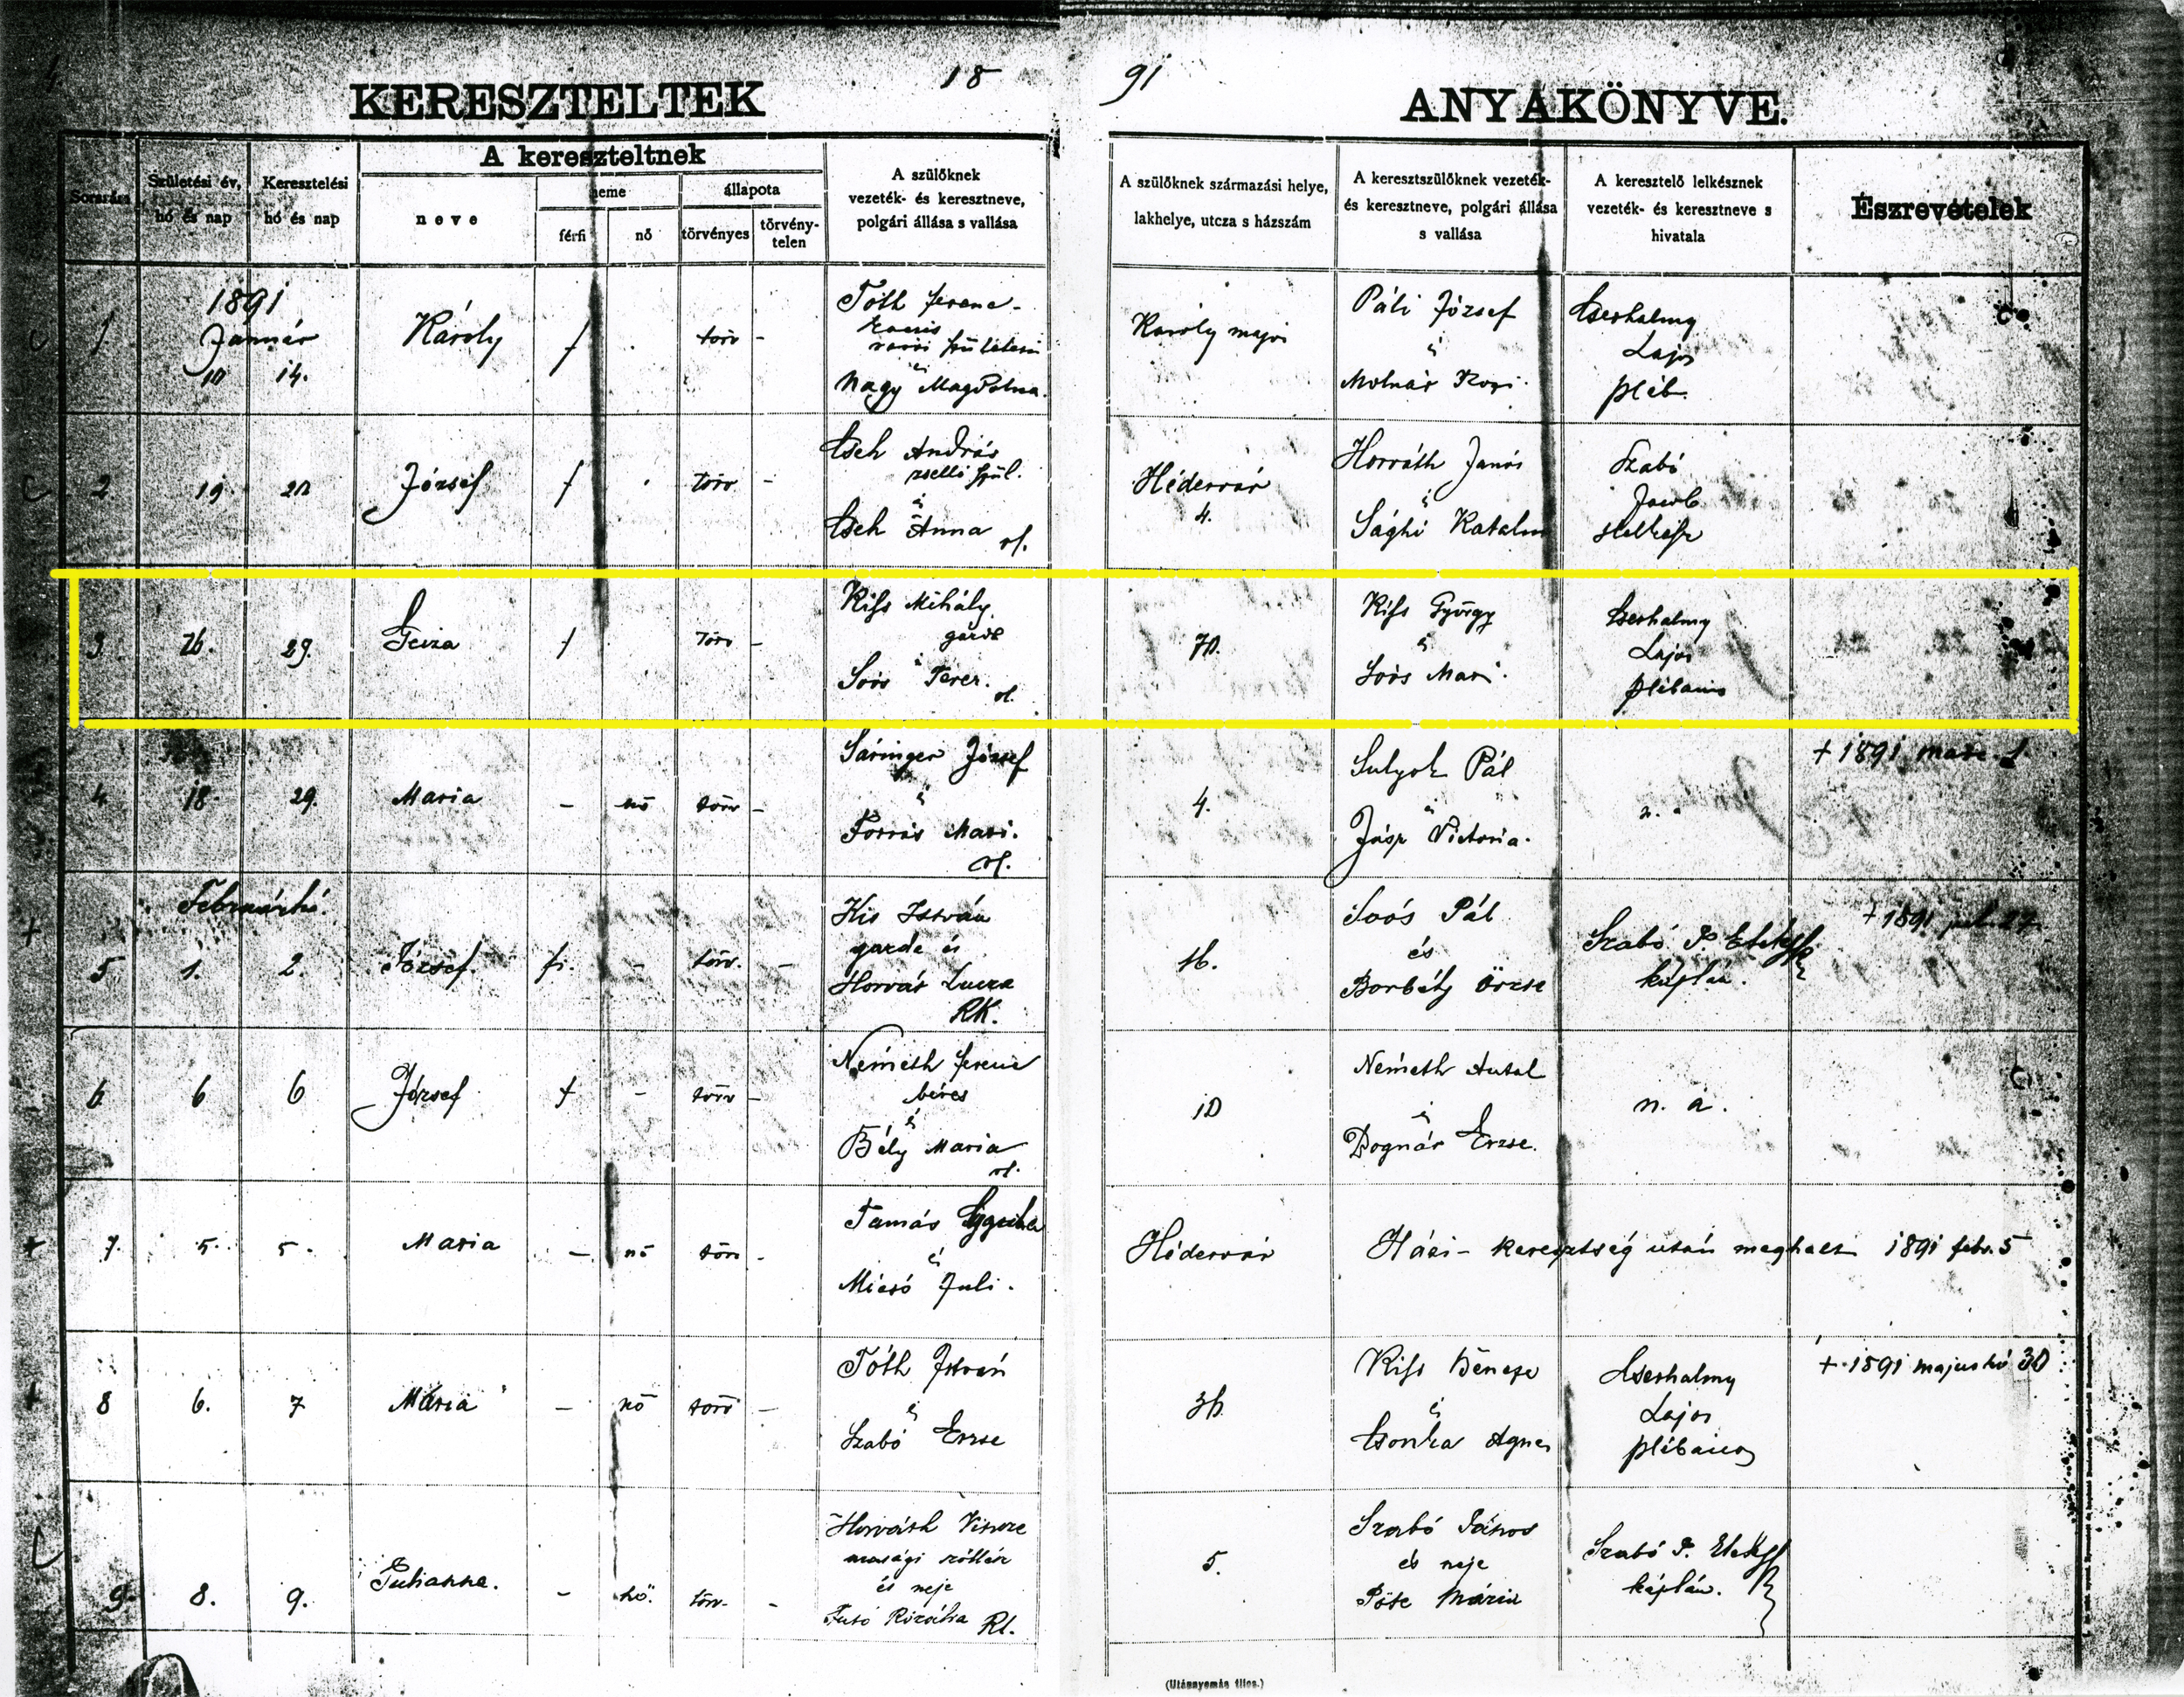 18 91
KERESZTELTEK ANYAKÖNYVE.
Sorszám
Születési év, hó és nap
Keresztelési hó és nap
A kereszteltnek
neve
neme
férfi
nő
állapota
törvényes
törvény-
telen
A szülőknek
vezeték- és keresztneve,
polgári állása s vallása
A szülőknek származási helye,
lakhelye, utcza s házszám
A keresztszülőknek vezeték-
és keresztneve, polgári állása
s vallása
A keresztelő lelkésznek
vezeték- és keresztneve s
hivatala
Észrevételek
1
1891
Január
10 14.
Károly
f
törv -
Tóth Ferenc
kocsis
és
Nagy Magdolna
Károly major
Páli József
és
Molnár Rozi.
Cserhalmy
Lajos
pléb.
2
19. 20
József
f
törv -
Cseh András
zsellér szül.
és
Cseh Anna
Hédervár
4.
Horváth János
és
Sághi Katalin
Szabó
Jacob
3
26. 29.
Geiza
f
törv -
Kiss Mihály
gazda
és
Soós Terez.
70.
Kiss György
és
Soós Mari.
Cserhalmy
Lajos
plébános
4
18. 29.
Maria
- nő törv -
Sáringer József
és
Forrás Mari.
4.
Sulyok Pál
és
Jász Victoria.
+ 1891 marc. 1
Februárhó.
5
1. 2.
József.
fi. - törv. -
Kis István
gazda és
Horvát Lucza
RK.
16.
Soós Pál
és
Borbély Örzse
Szabó P. Elek
káplán.
+ 1891 jul. 27
6
6 6
József
f - törv -
Németh Ferenc
béres
és
Bély Maria
10
Németh Antal
és
Bognár Erzse.
n. a.
7.
5. 5.
Maria
- nő törv -
Tamás
és
Micsó Juli.
Hédervár
Házi- keresztség után meghalt 1891 febr. 5
8
6. 7
Mária
- nő törv -
Tóth István
és
Szabó Erzse
36.
Kiss Bencze
és
Csonka Agnes
Cserhalmy
Lajos
plébános
+ 1891 majushó 30
9.
8. 9.
Julianna.
- nő. törv. -
Horváth Vincze
és neje
Futó Rozália Rk.
5.
Szabó János
és neje
Pőte Mária
Szabó P. Elek
káplán.
(Utánnyomás tilos.)